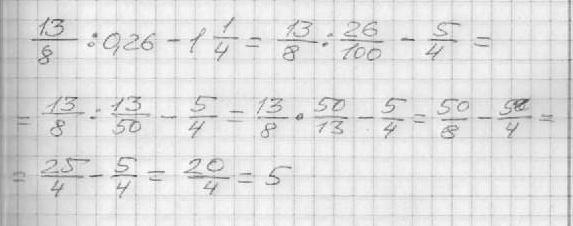 13/8 : 0,26 - 1 1/4 = 13/8 : 26/100 - 5/4 =
= 13/8 : 13/50 - 5/4 = 13/8 • 50/13 - 5/4 = 50/8 - 5/4 =
= 25/4 - 5/4 = 20/4 = 5